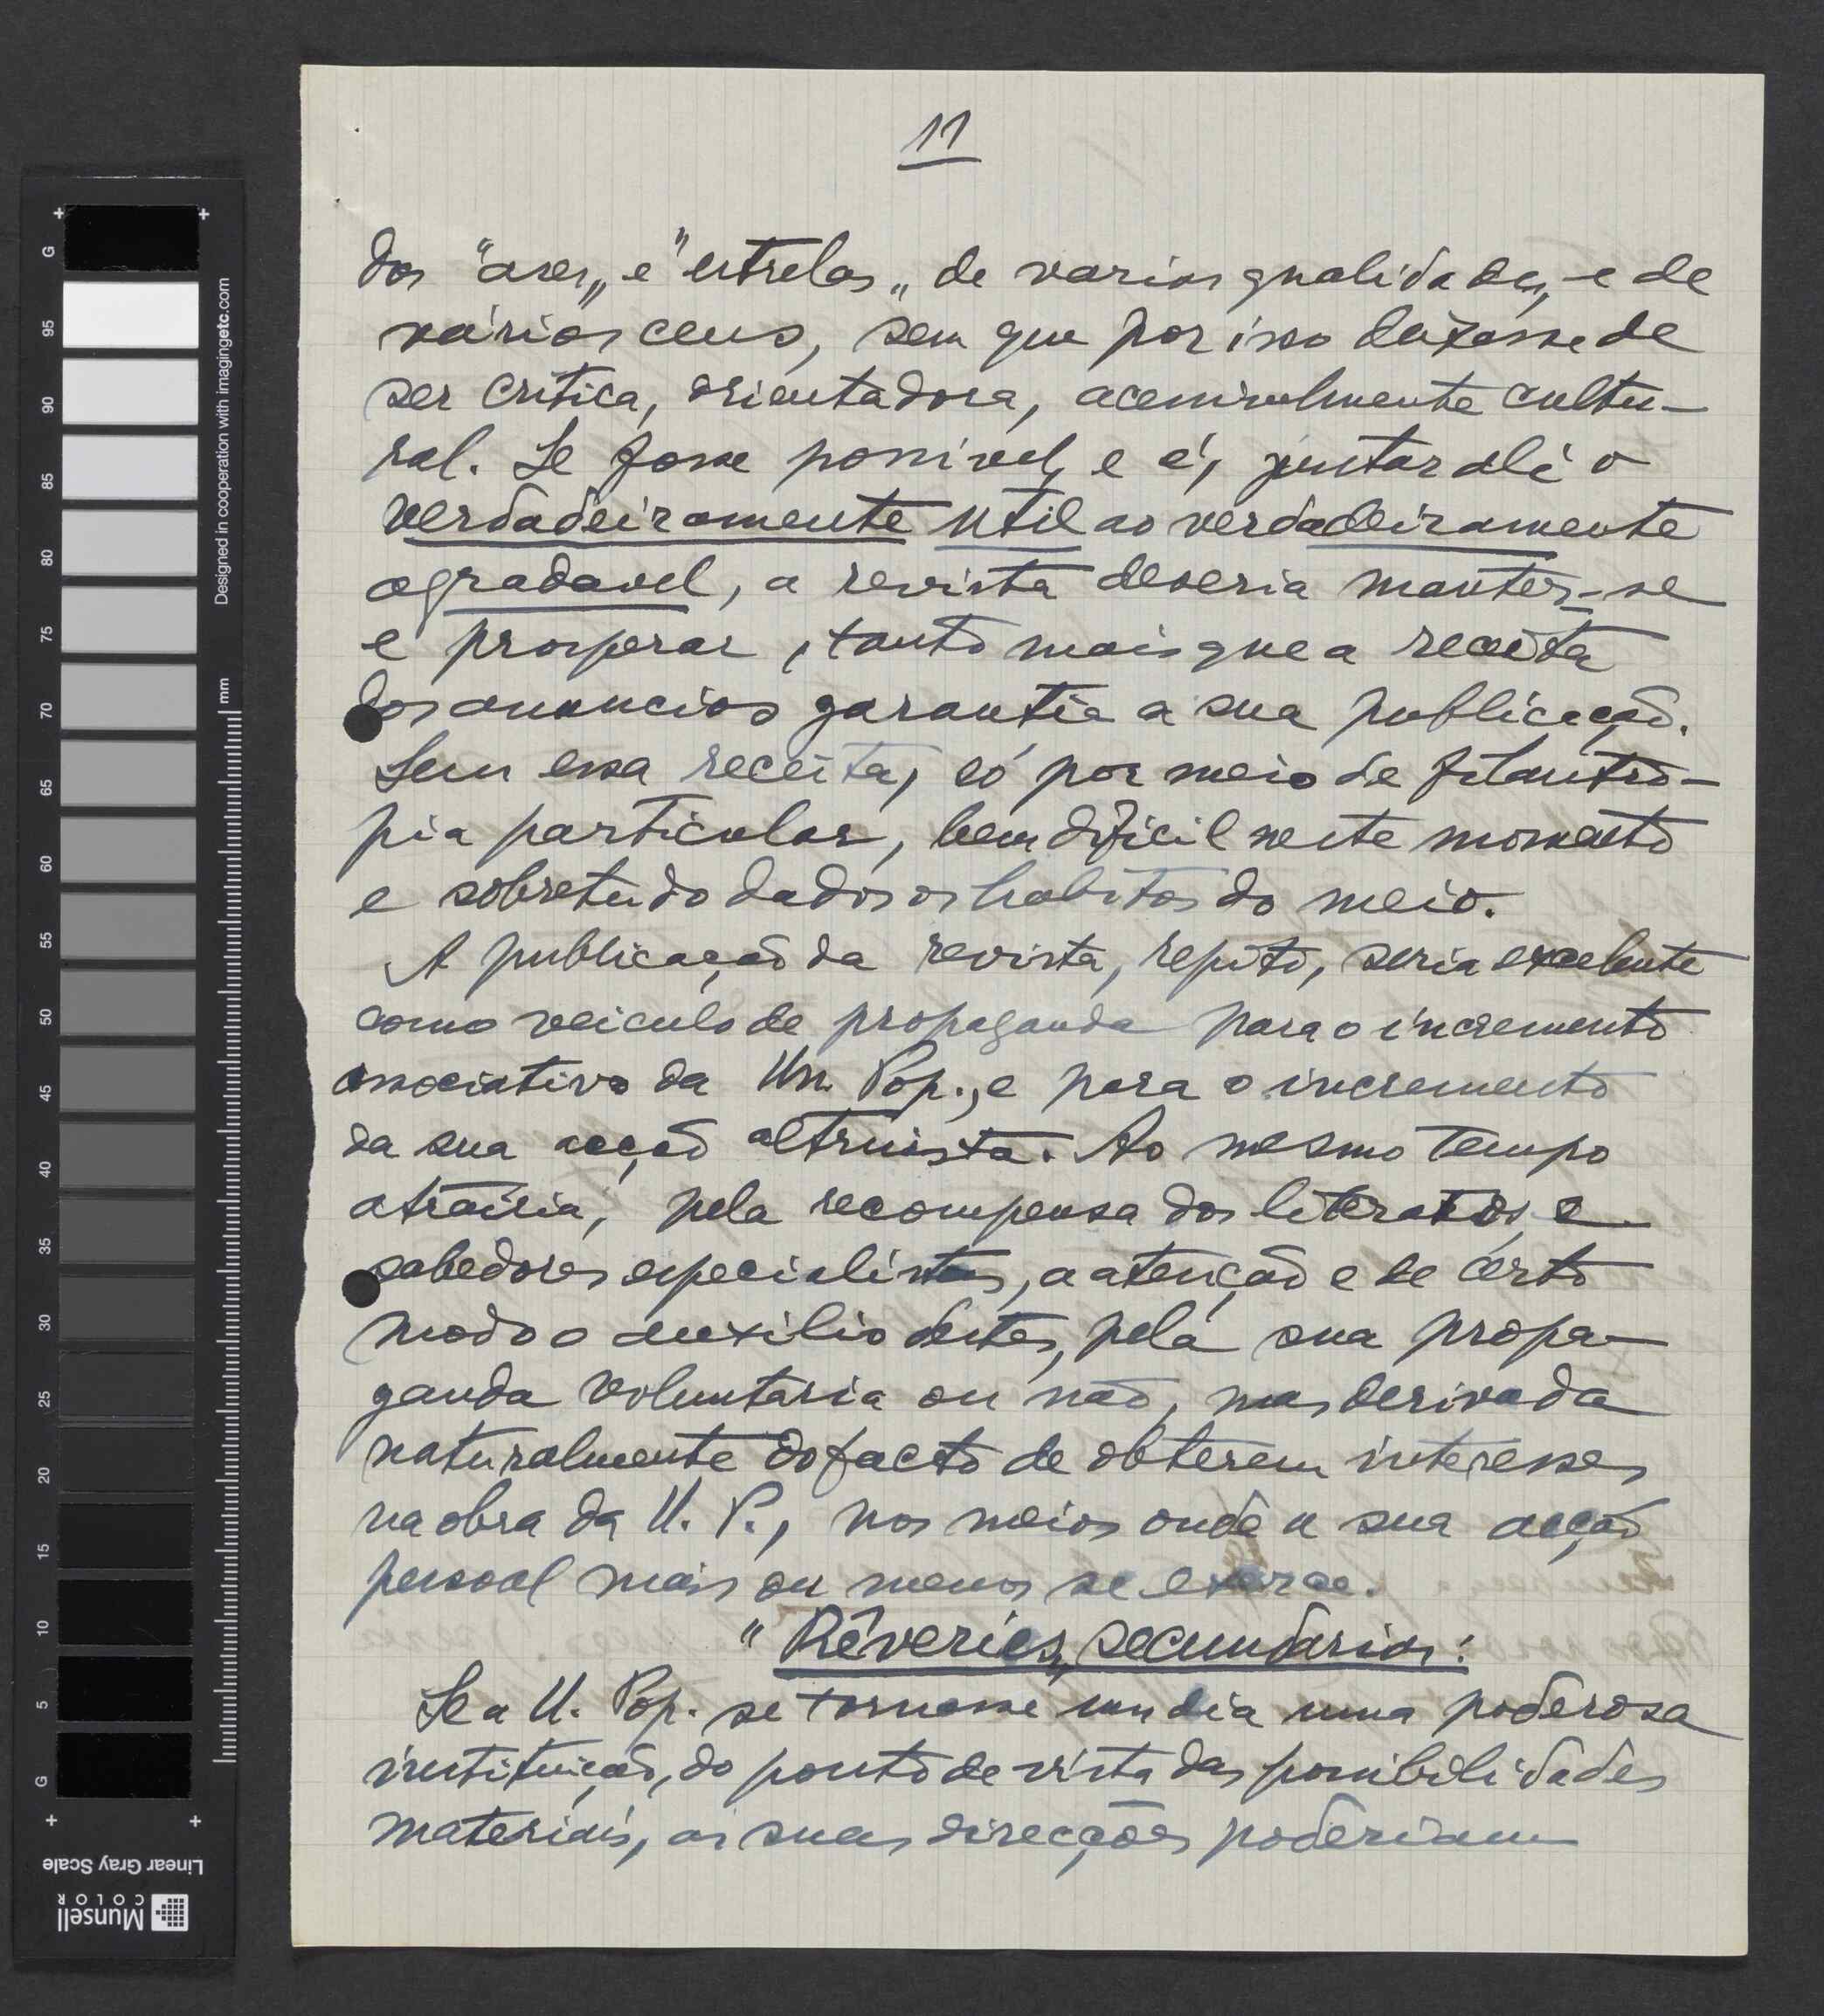 11
dos "ases„ e "estrelas„ de varias qualidades, e de
vários ceus, sem que por isso deixasse de
ser critica, orientadora, acessivelmente cultu-
ral. Se fosse possivel, e é, juntar ali o
verdadeiramente util ao verdadeiramente
agradavel, a revista deveria manter-se
e prosperar, tanto mais que a receita
dos anuncios garantia a sua publicação.
Sem essa receita, só por meio de filantro-
pia particular, bem dificil neste momento
e sobretudo dados os habitos do meio.
A publicação da revista, repito, seria excelente
como veiculo de propaganda para o incremento
associativo da Un. Pop., e para o incremento
da sua acção altruista. Ao mesmo tempo
atrairia, pela recompensa dos literatos, e
sabedores especialistas, a atenção e de certo
modo o auxilio destes, pela sua propa-
ganda voluntaria ou não, mas derivada
naturalmente do facto de obterem interesses
na obra da U. P., nos meios onde a sua acção
pessoal mais ou menos se exerce.
"Rêveries„ secundarias:
Se a U. Pop. se tornasse um dia uma poderosa
instituição, do ponto de vista das possibilidades
materiais, as suas direcções poderiam
G
95
90
85
80
75
70
65
60
55
50
45
40
35
30
25
20
15
10
5
G
mm
Designed in cooperation with imagingetc.com
Linear Gray Scale
Munsell
COLOR